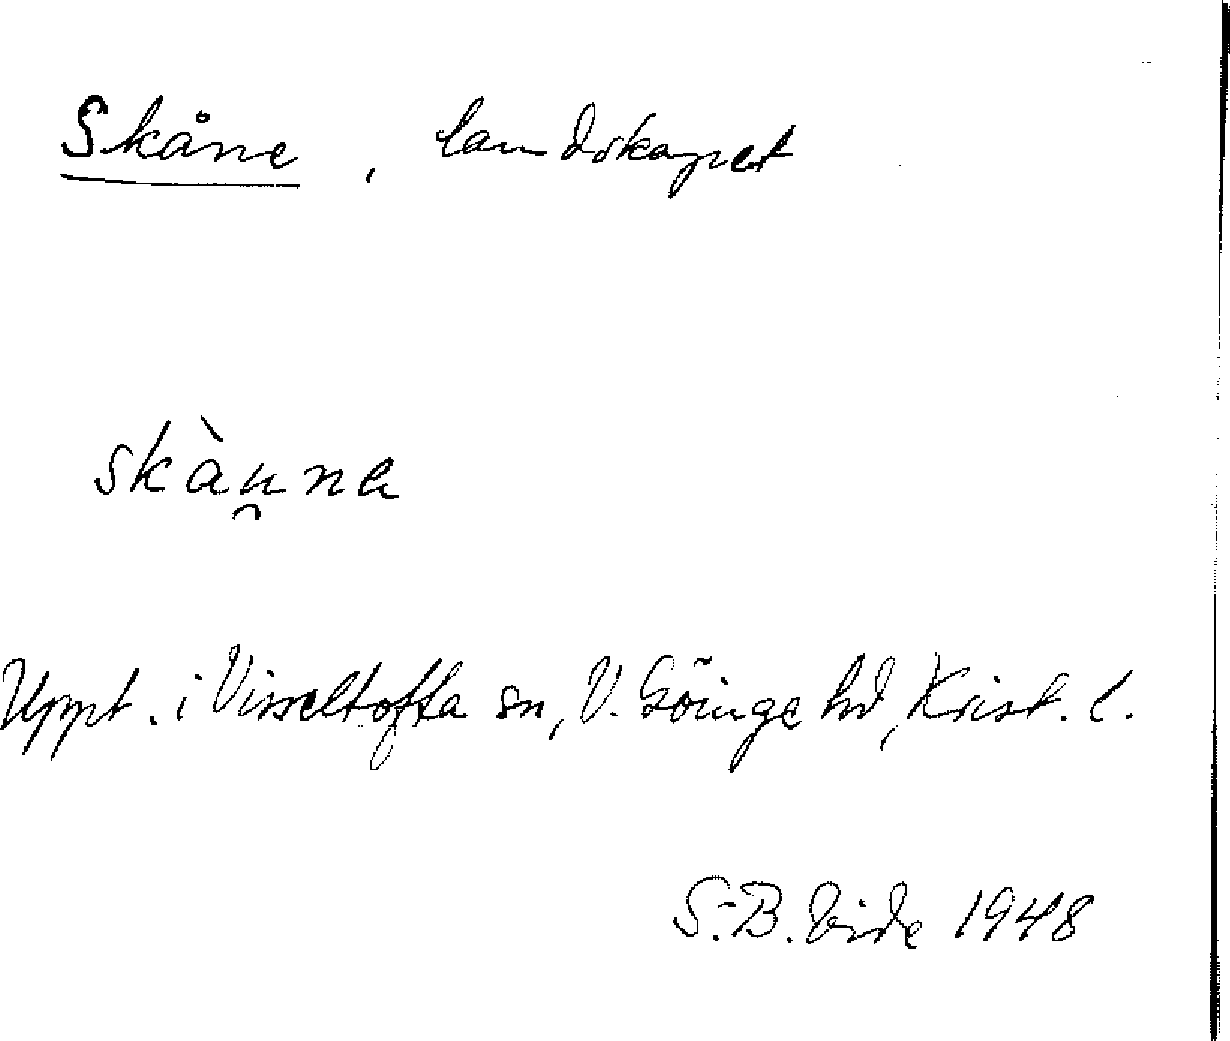 Skåne, landskapet
skàu̯na
Uppt. i Visseltofta sn, V. Göinge hd, Krist. l.
S.-B. Vide 1948